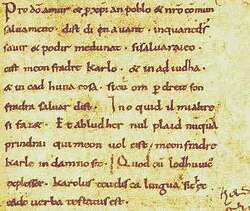 Pro dō amur & p xp̄ian poblo & nr̄o comun
saluament · dist di en auant · inquantdſ
sauir & podir medunat · sisaluaraieo
cist meonfradre Karlo · & in adiudha ·
& in cad huna cosa · sicū om p dreit son
fradra saluar dist · Ino quid il mialtre
si fazet · Et abludher nul plaid nūquā
prindrai qui meon uol cist · meonfradre
Karle in damno sit · Quod cū lodhuuic
explesset · Karolus teudisca lingua sic ec
eadē uerba testatus est ·